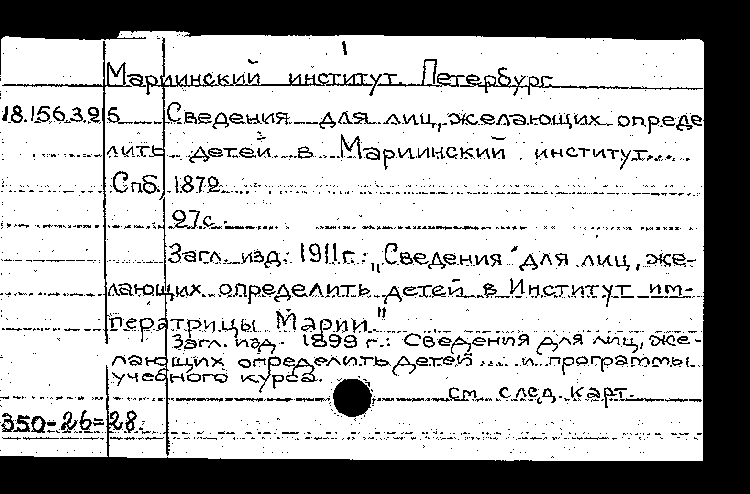 1
Мариинский институт. Петербург
18.156.3.9 5 Сведения для лиц, желающих опреде
лить детей в Мариинский институт...
Спб, 1872
97с.
Загл. изд. 1911г.: „Сведения для лиц, же-
лающих определить детей в Институт им-
ператрицы Марии."
Загл. изд. 1899 г.: Сведения для лиц, же-
лающих определить детей ... и программы
учебного курса.
см след. карт.
350-26=28.